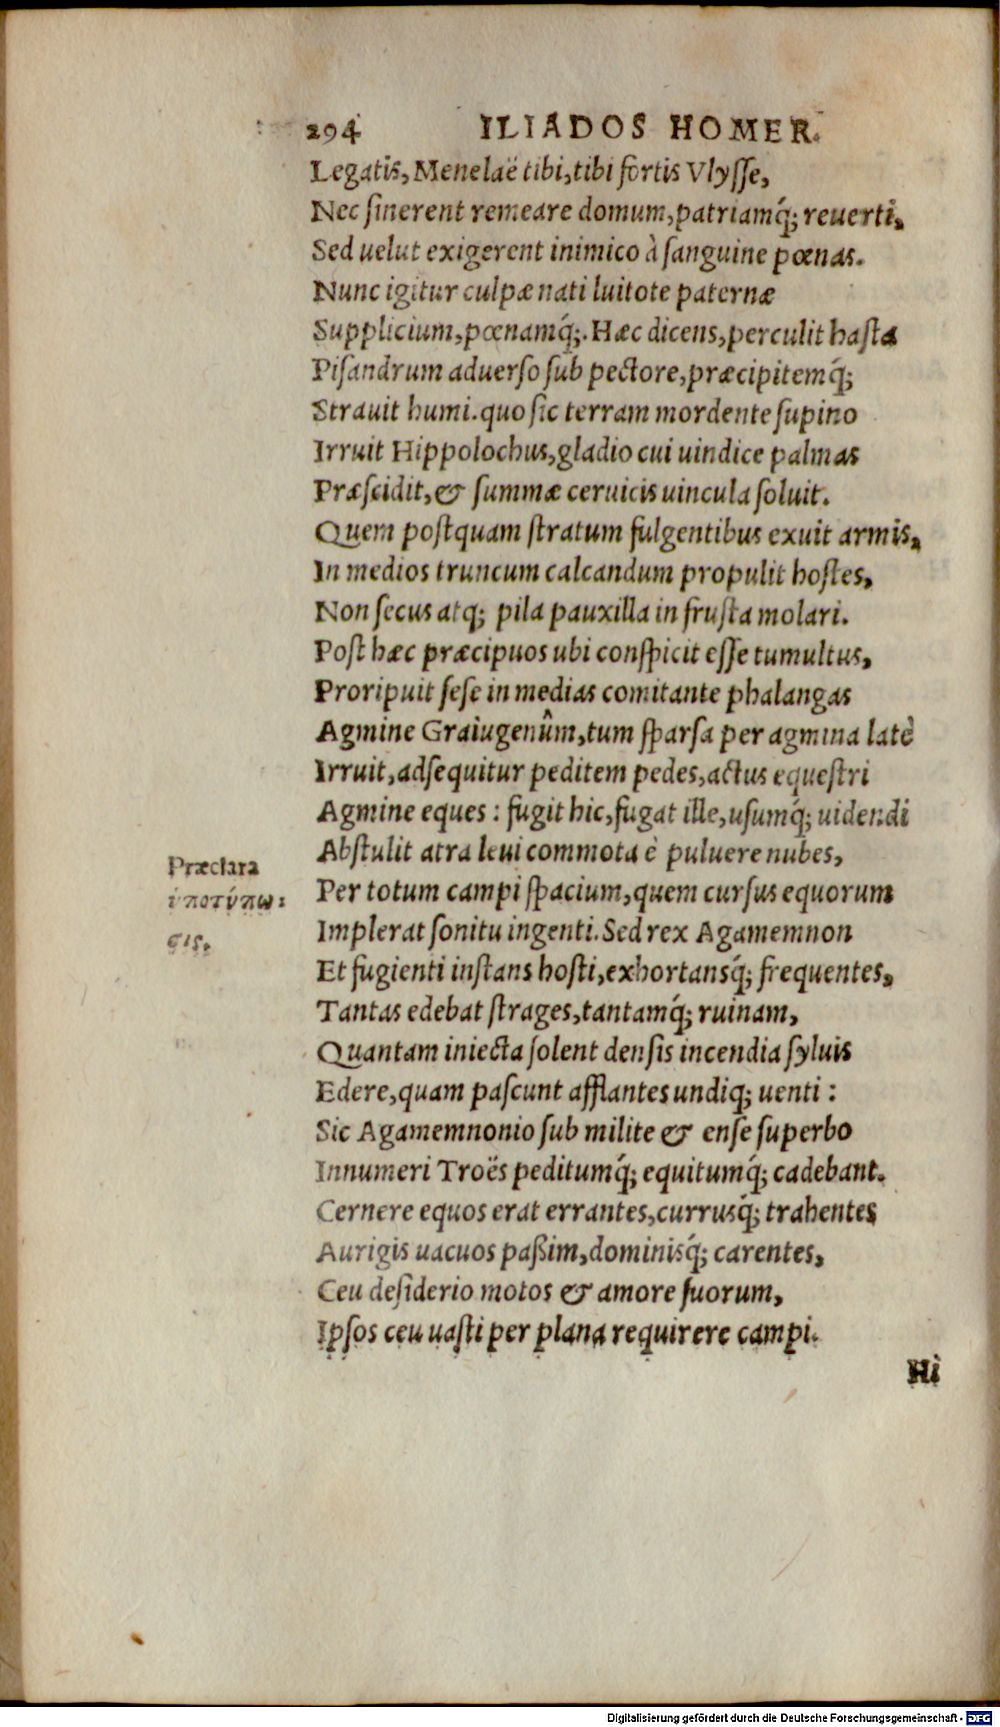 294 ILIADOS HOMER.
Legatis, Menelaë tibi, tibi fortis Vlysse,
Nec sinerent remeare domum, patriamq́; reuerti,
Sed uelut exigerent inimico à sanguine pœnas.
Nunc igitur culpæ nati luitote paternæ
Supplicium, pœnamq́;. Hæc dicens, perculit hasta
Pisandrum aduerso sub pectore, præcipitemq́;
Strauit humi. quo sic terram mordente supino
Irruit Hippolochus, gladio cui uindice palmas
Præscidit, & summæ ceruicis uincula soluit.
Quem postquam stratum fulgentibus exuit armis,
In medios truncum calcandum propulit hostes,
Non secus atq; pila pauxilla in frusta molari.
Post hæc præcipuos ubi conspicit esse tumultus,
Proripuit sese in medias comitante phalangas
Agmine Graiugenûm, tum sparsa per agmina latè
Irruit, adsequitur peditem pedes, actus equestri
Agmine eques: fugit hic, fugat ille, usumq́; uidendi
Abstulit atra leui commota è puluere nubes,
Per totum campi spacium, quem cursus equorum
Implerat sonitu ingenti. Sed rex Agamemnon
Et fugienti instans hosti, exhortansq́; frequentes,
Tantas edebat strages, tantamq́; ruinam,
Quantam iniecta solent densis incendia syluis
Edere, quam pascunt afflantes undiq; uenti:
Sic Agamemnonio sub milite & ense superbo
Innumeri Troës peditumq́; equitumq́; cadebant.
Cernere equos erat errantes, currusq́; trahentes
Aurigis uacuos paßim, dominisq́; carentes,
Ceu desiderio motos & amore suorum,
Ipsos ceu uasti per plana requirere campi.
Hi
Præclara
ὑποτύπω:
σις.
Digitalisierung gefördert durch die Deutsche Forschungsgemeinschaft - DFG